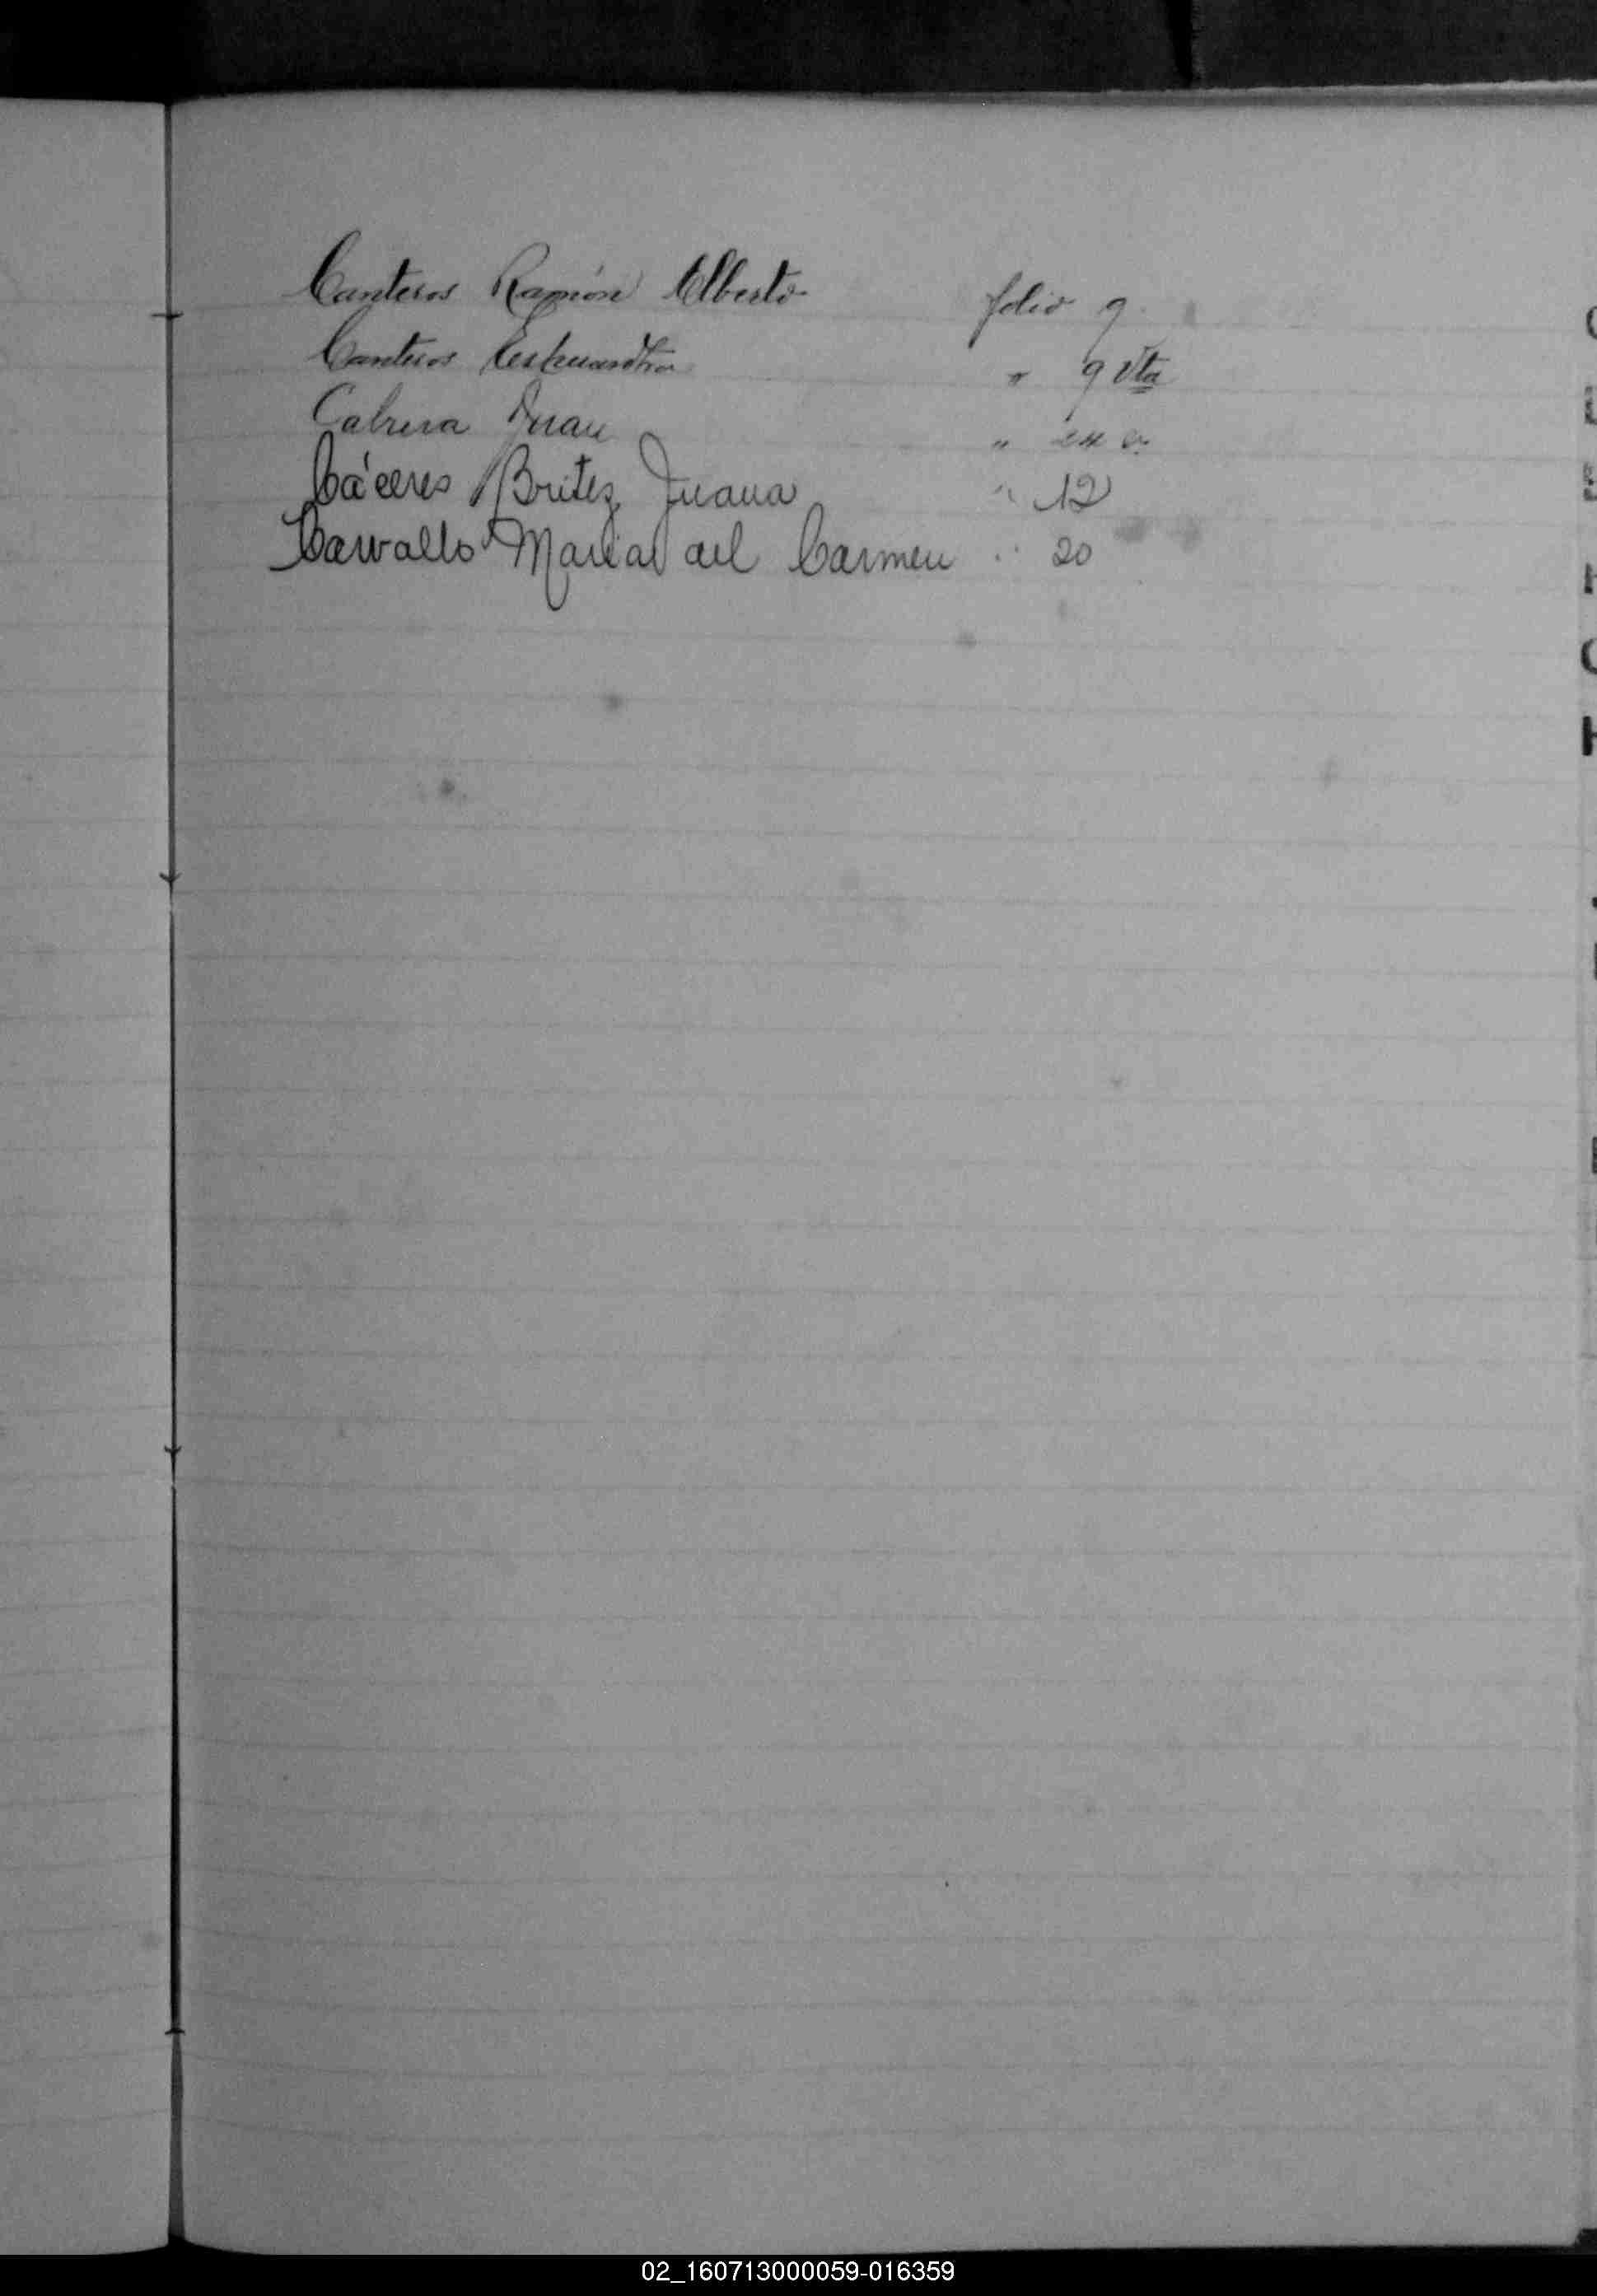 Canteros Ramón Alberto folio 9.
Canteros " 9 vta
Cabrera Juan "
Cáceres Britez Juana " 12
Carvallo Maria del Carmen " 20
02_160713000059-016359